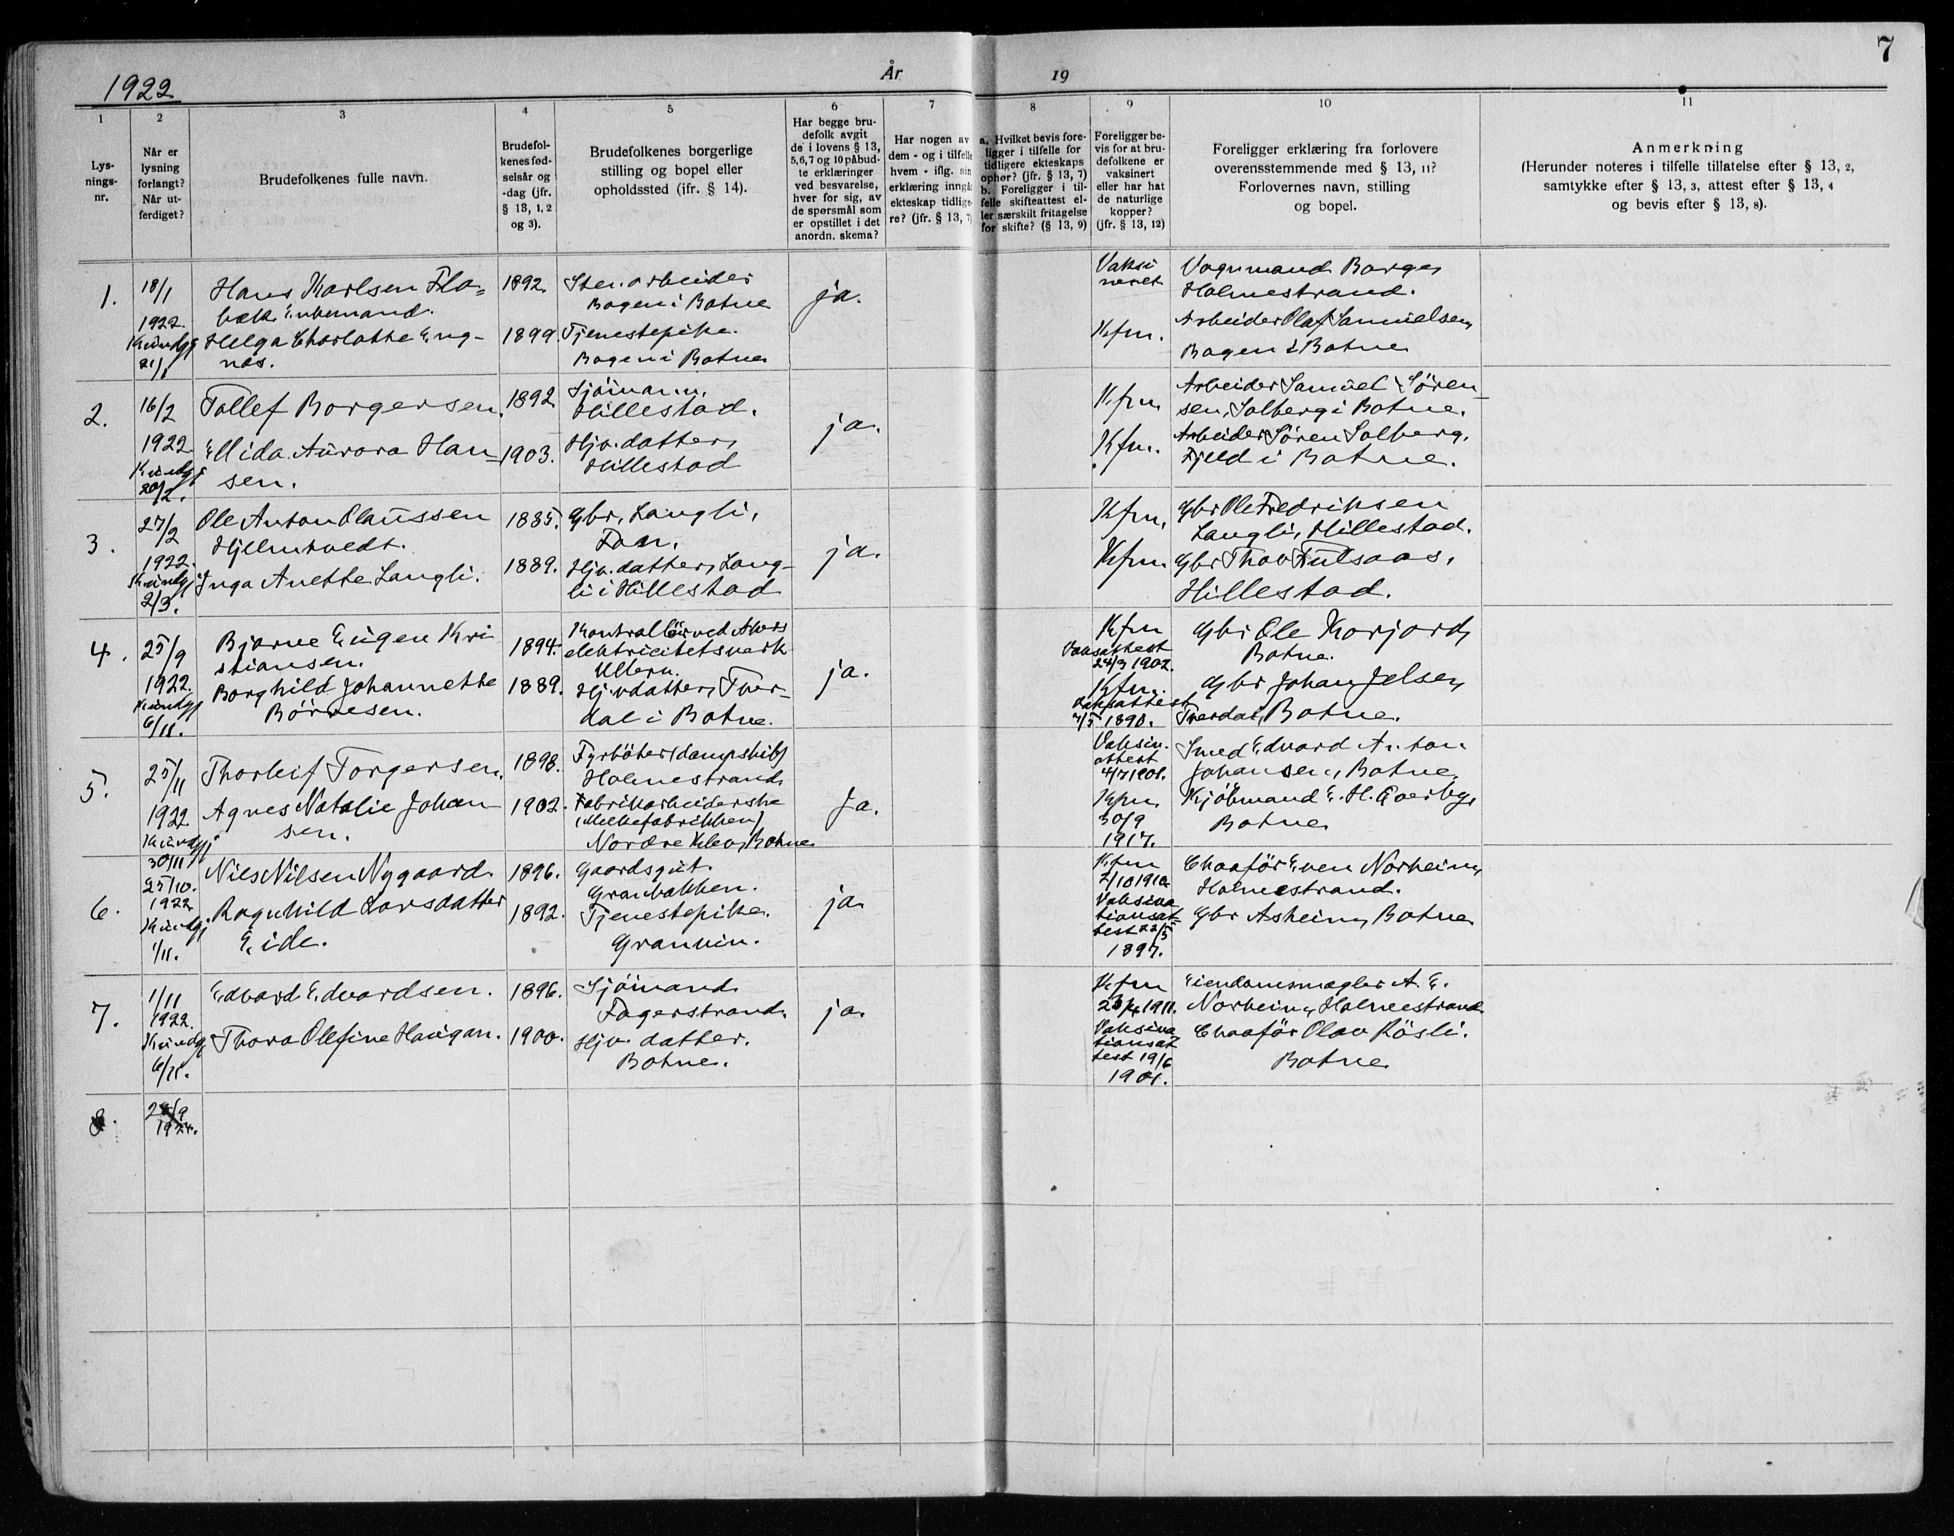 1922
År
19
7
1
2
3
4
5
6
7
8
9
10
11
Lys-
nings-
nr.
Når er
lysning
forlangt?
Når ut-
ferdiget?
Brudefolkenes fulle navn.
Brudefol-
kenes fød-
selsår og
-dag (jfr.
§ 13, 1, 2
og 3).
Brudefolkenes borgerlige
stilling og bopel eller
opholdssted (jfr. § 14).
Har begge bru-
defolk avgit
de i lovens § 13,
5,6,7 og 10 påbud-
te erklæringer
ved besvarelse,
hver for sig, av
de spørsmål som
er opstillet i det
anordn. skema?
Har nogen av
dem - og i tilfelle
hvem - iflg. sin
erklæring inngåt
ekteskap tidlige-
re? (jfr. § 13, 7)
a. Hvilket bevis fore-
ligger i tilfelle for
tidligere ekteskaps
ophør? (jfr. § 13, 7)
b. Foreligger i til-
felle skifteattest el-
ler særskilt fritagelse
for skifte? (§ 13, 9)
Foreligger be-
vis for at bru-
defolkene er
vaksinert
eller har hat
de naturlige
kopper?
(jfr. § 13, 12)
Foreligger erklæring fra forlovere
overensstemmende med § 13, 11?
Forlovernes navn, stilling
og bopel.
Anmerkning
(Herunder noteres i tilfelle tillatelse efter § 13, 2,
samtykke efter § 13, 3, attest efter § 13, 4
og bevis efter § 13, 8).
1.
18/1
1922.
Kundgj
21/1
Hans Karlsen Fla=
bæk. Enkemand.
Helga Charlotte Eng-
nes.
1892.
1899.
Stenarbeider
Bogen i Botne
Tjenestepike.
Bogen i Botne
ja.
Vaksi
neret
Kfm.
Vognmand Borge,
Holmestrand.
Arbeider Olaf Samuelsen,
Bogen i Botne
2.
16/2
1922.
Kundgj
20/2.
Tollef Borgersen.
Ellida Aurora Han-
sen.
1892
1903.
Sjömann,
Hillestad.
Hjv. datter,
Hillestad
ja.
Kfm.
Kfm.
Arbeider Samuel Sören-
sen, Solberg i Botne.
Arbeider Sören Solberg,
Fjeld i Botne.
3.
27/2
1922.
Kundgj
2/3.
Ole Anton Olaussen
Hjelmtvedt.
Inga Anette Langli.
1885.
1889.
Gbr, Langli,
Hjv. datter, Lang-
li i Hillestad
ja.
Kfm.
Kfm.
Gbr Ole Fredriksen
Langli, Hillestad.
Gbr Thov Fulsaas,
Hillestad.
4.
25/9
1922.
Kundgj
6/11.
Bjarne Eugen Kri
stiansen.
Borghild Johannette
Börresen.
1894.
1889.
Kontrollör ved Akers
elektricitetsverk
Ullern.
Hjv datter, Tver-
dal i Botne.
ja.
Kfm
Vaksattest
24/3 1902.
Kfm.
Vaksattest
7/5 1890.
Gbr Ole Korjord,
Botne.
Gbr Johan Jelsen,
Tverdal, Botne.
5.
25/11
1922
Kundgj
30/11
Thorleif Torgersen.
Agnes Natalie Johan
sen.
1898.
1902.
Fyrböter (dampskib)
Holmestrand
Fabrikarbeiderske
(Melkefabrikken)
Nordre Klev, Botne
Ja.
Vaksin.
attest
4/7 1901.
Kfm.
30/9
1917.
Smed Edvard Anton
Johansen, Botne.
Kjöbmand E. H. Goerby,
Botne
6.
25/10.
1922
Kundgj
1/11.
Nils Nilsen Nygaard.
Ragnhild Larsdatter
Eide.
1896.
1892.
Gaardsgut.
Granbakken.
Tjenestepike.
Granvin.
ja
Kfm
2/10 1910
Vaksina
tionsat-
test 22/5
1897.
Chaaför Even Norheim,
Holmestrand.
Gbr Asheim, Botne
7.
1/11
1922.
Kundgj
6/11.
Edvard Edvardsen.
Thora Olefine Haugan.
1896.
1900.
Sjömand.
Fagerstrand.
Hjv. datter.
Botne.
ja.
Kfm
1911.
Vaksina
tionsat
test 19/6
1901.
Eiendomsmægler A. E.
Norheim, Holmestrand
Chaaför Olav Rösli.
Botne
8.
1924.